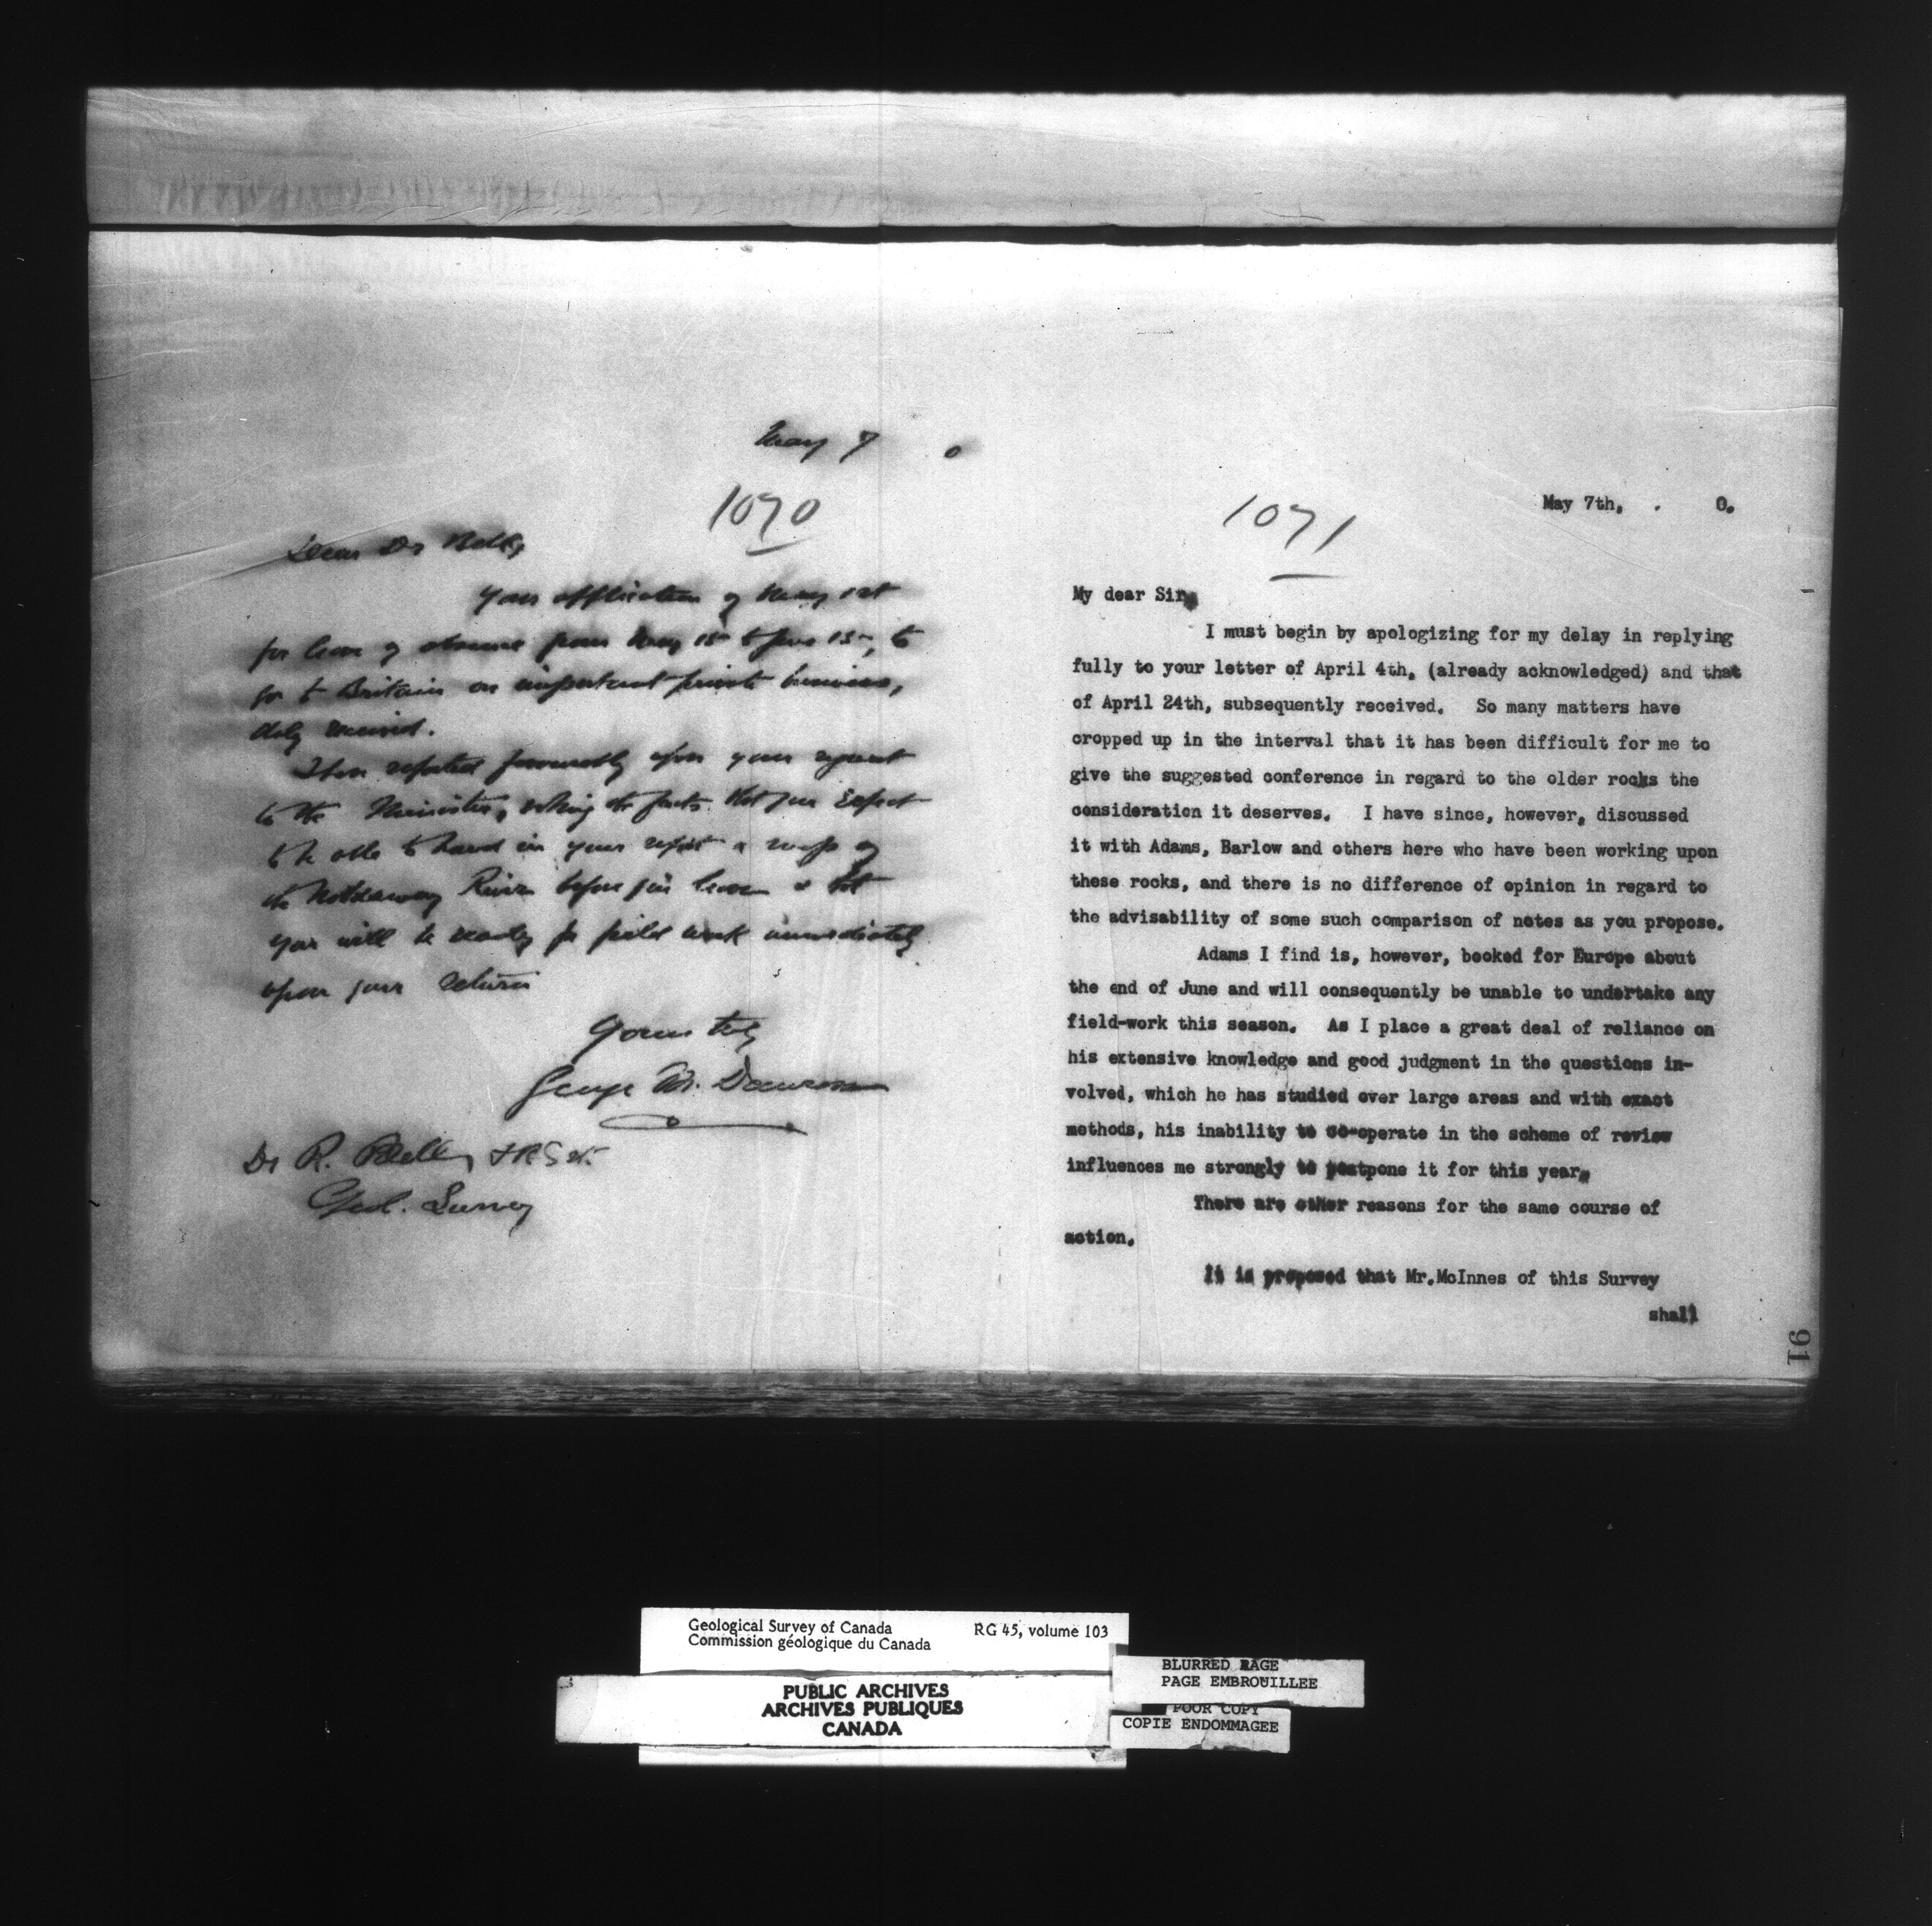 May 7 0
1070
Dear Dr Bell,
Your application of May 1st
for leave of absence from May 15th to June 15th, to
go to Britain on important private business,
duly received.
I have reported favourably upon your request
to the Minister, noting the facts that you expect
to be able to hand in your report & map of
the Nottaway River before you leave & that
you will be ready for field work immediately
upon your return
Yours truly
George M. Dawson
Dr R. Bell, F.R.S. etc.
Geol. Survey
May 7th, . 0.
1071
My dear Sir,
I must begin by apologizing for my delay in replying
fully to your letter of April 4th, (already acknowledged) and that
of April 24th, subsequently received. So many matters have
cropped up in the interval that it has been difficult for me to
give the suggested conference in regard to the older rocks the
consideration it deserves. I have since, however, discussed
it with Adams, Barlow and others here who have been working upon
these rocks, and there is no difference of opinion in regard to
the advisability of some such comparison of notes as you propose.
Adams I find is, however, booked for Europe about
the end of June and will consequently be unable to undertake any
field-work this season. As I place a great deal of reliance on
his extensive knowledge and good judgment in the questions in-
volved, which he has studied over large areas and with exact
methods, his inability to co-operate in the scheme of review
influences me strongly to postpone it for this year.
There are other reasons for the same course of
action.
It is proposed that Mr.McInnes of this Survey
shall
91
Geological Survey of Canada RG 45, volume 103
Commission géologique du Canada
PUBLIC ARCHIVES
ARCHIVES PUBLIQUES
CANADA
BLURRED PAGE
PAGE EMBROUILLEE
POOR COPY
COPIE ENDOMMAGEE